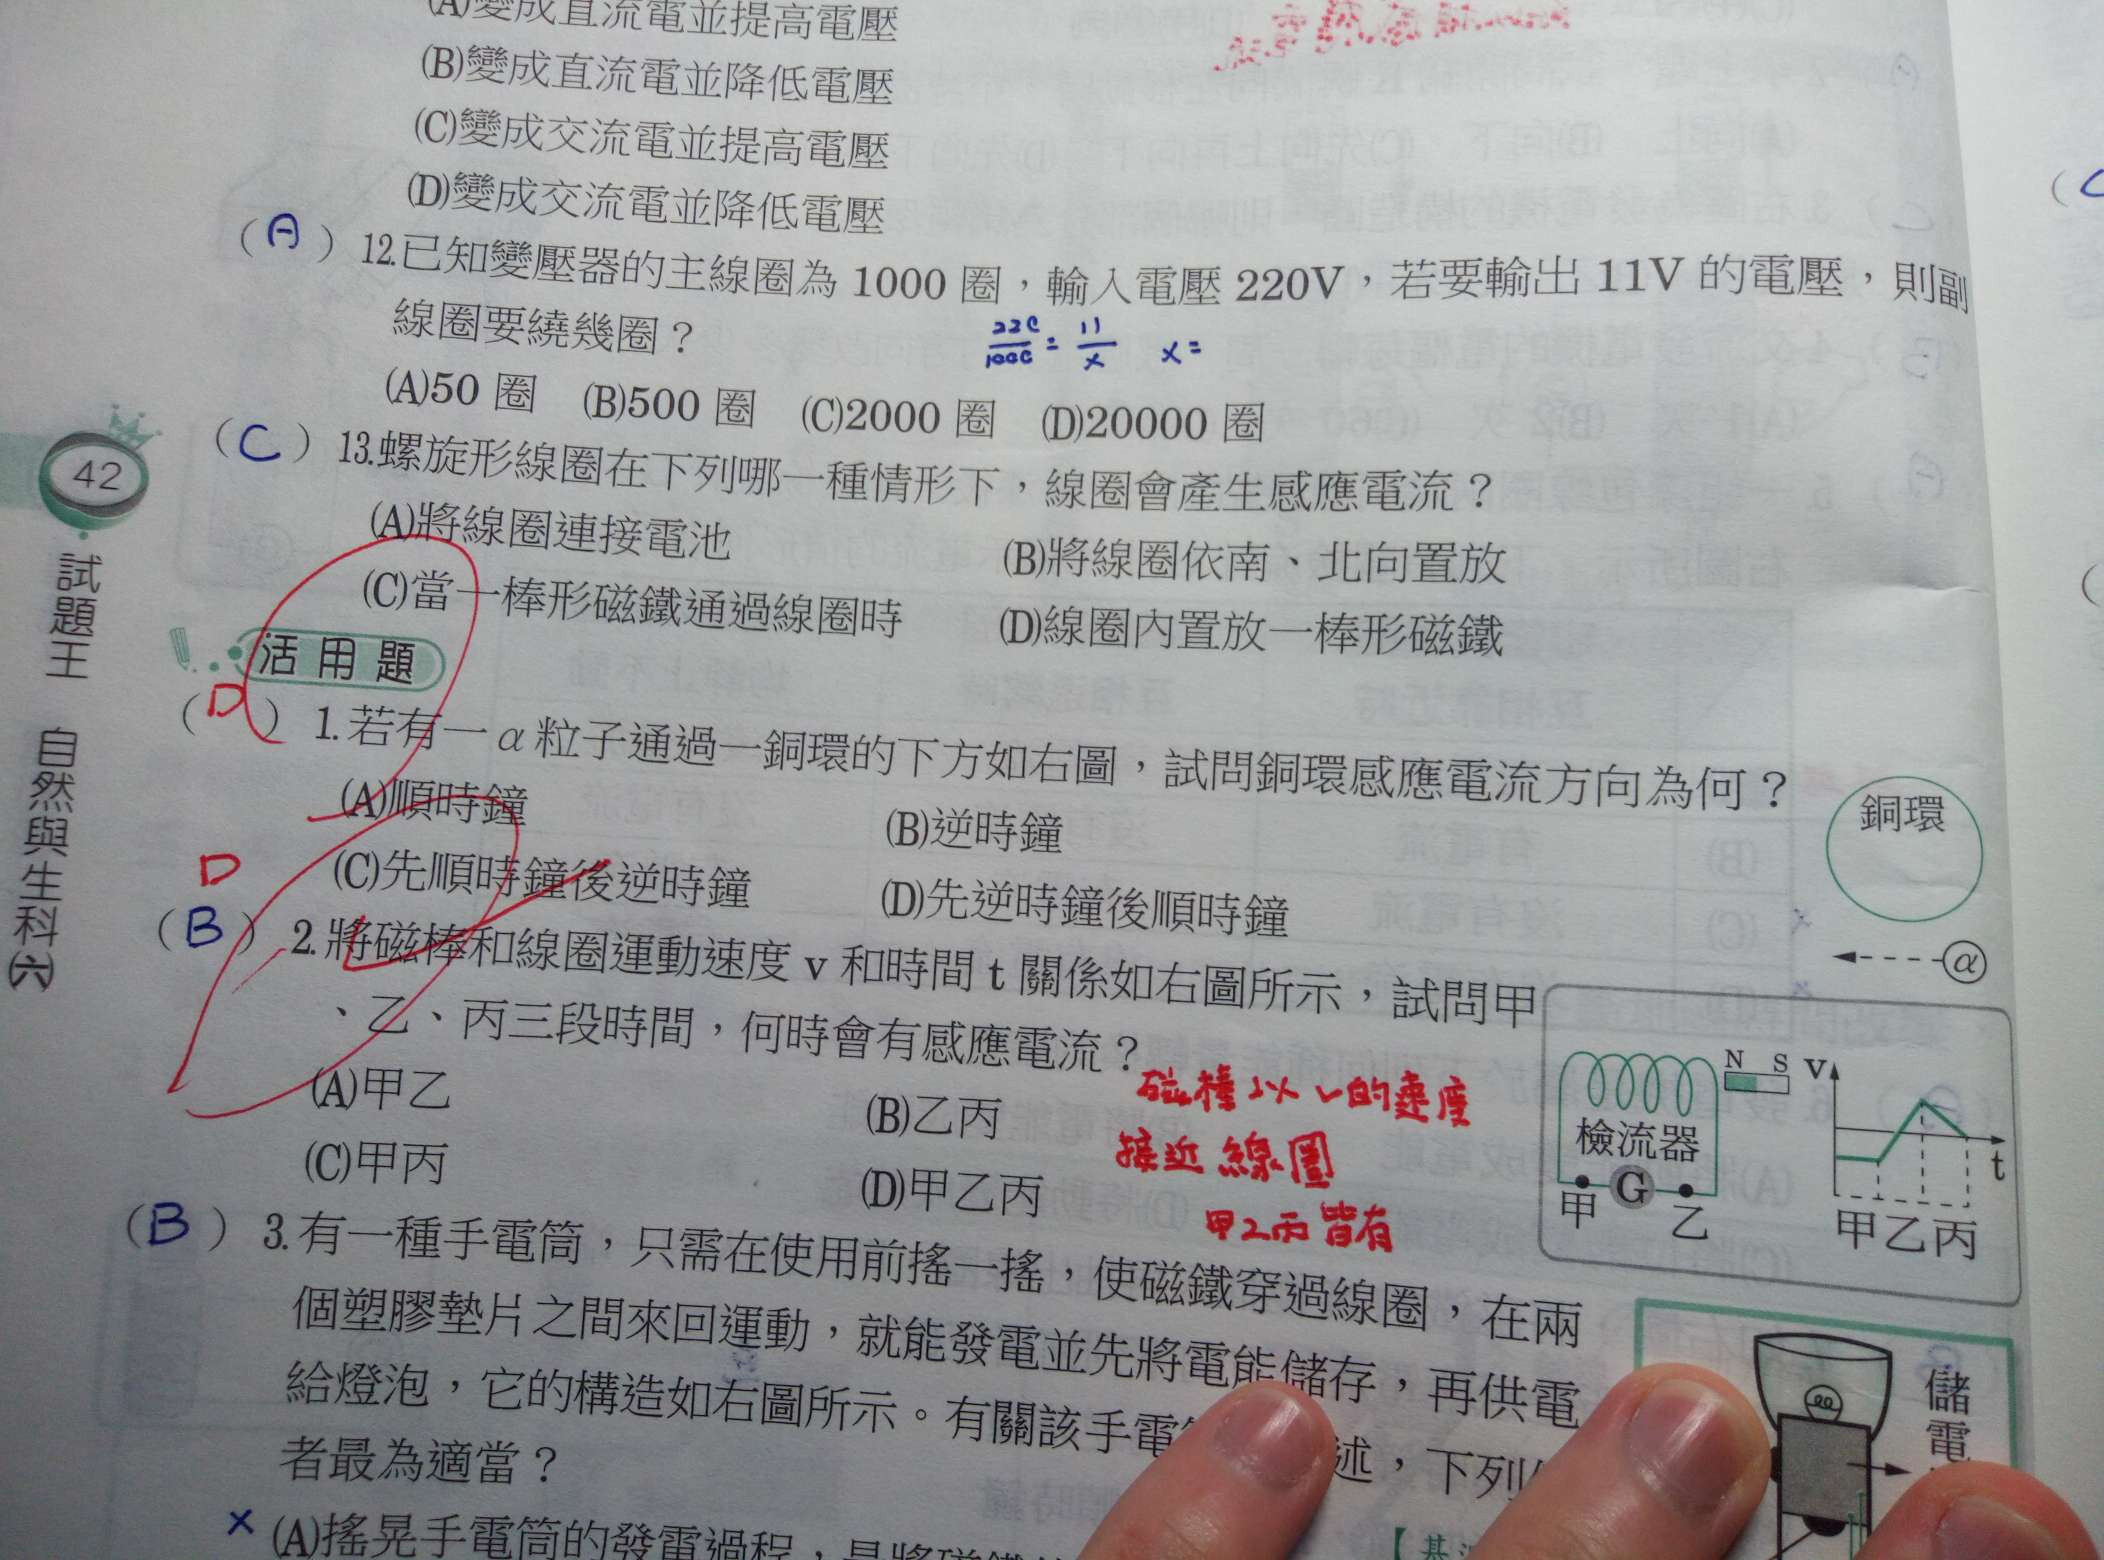 (A)變成直流電並提高電壓
(B)變成直流電並降低電壓
(C)變成交流電並提高電壓
(D)變成交流電並降低電壓
(A) 12.已知變壓器的主線圈為 1000 圈，輸入電壓 220V，若要輸出 11V 的電壓，則副
線圈要繞幾圈？
220/1000 = 11/x x=
(A)50 圈 (B)500 圈 (C)2000 圈 (D)20000 圈
(C) 13.螺旋形線圈在下列哪一種情形下，線圈會產生感應電流？
(A)將線圈連接電池 (B)將線圈依南、北向置放
(C)當一棒形磁鐵通過線圈時 (D)線圈內置放一棒形磁鐵
42
試題王 自然與生科(六)
活用題
(D) 1.若有一α粒子通過一銅環的下方如右圖，試問銅環感應電流方向為何？
(A)順時鐘 (B)逆時鐘
(C)先順時鐘後逆時鐘 (D)先逆時鐘後順時鐘
銅環
α
D
(B) 2.將磁棒和線圈運動速度 v 和時間 t 關係如右圖所示，試問甲
、乙、丙三段時間，何時會有感應電流？
(A)甲乙 (B)乙丙
(C)甲丙 (D)甲乙丙
磁棒以v的速度
接近線圈
甲乙丙皆有
N S
檢流器
甲 G 乙
v
t
甲乙丙
(B) 3.有一種手電筒，只需在使用前搖一搖，使磁鐵穿過線圈，在兩
個塑膠墊片之間來回運動，就能發電並先將電能儲存，再供電
給燈泡，它的構造如右圖所示。有關該手電 述，下列
者最為適當？
儲電
× (A)搖晃手電筒的發電過程，是將磁鐵